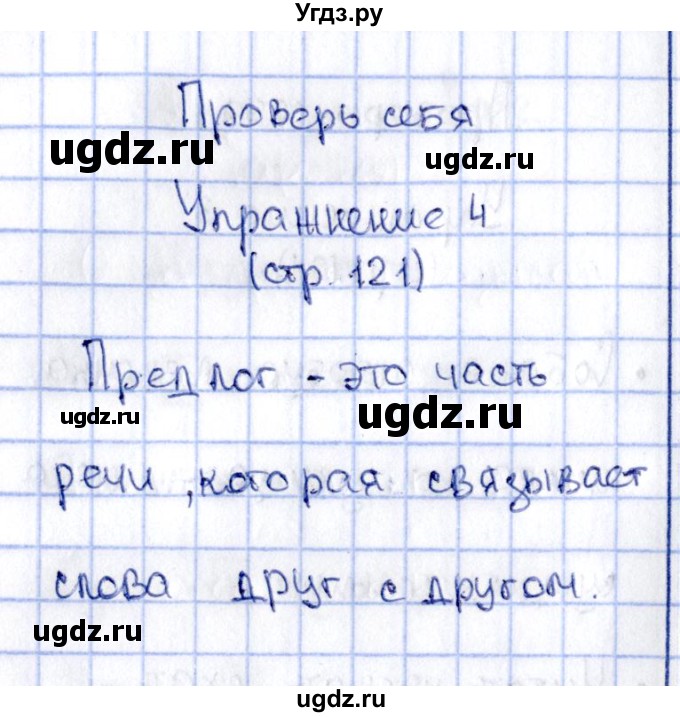 Угдз.ру
Проверь себя
ugdz.ru
ugdz.ru
Упражнение 4
(стр. 121)
Предлог - это часть
ugdz.ru
ugdz.ru
речи, которая связывает
слова друг с другом.
ugdz.ru
ugdz.ru